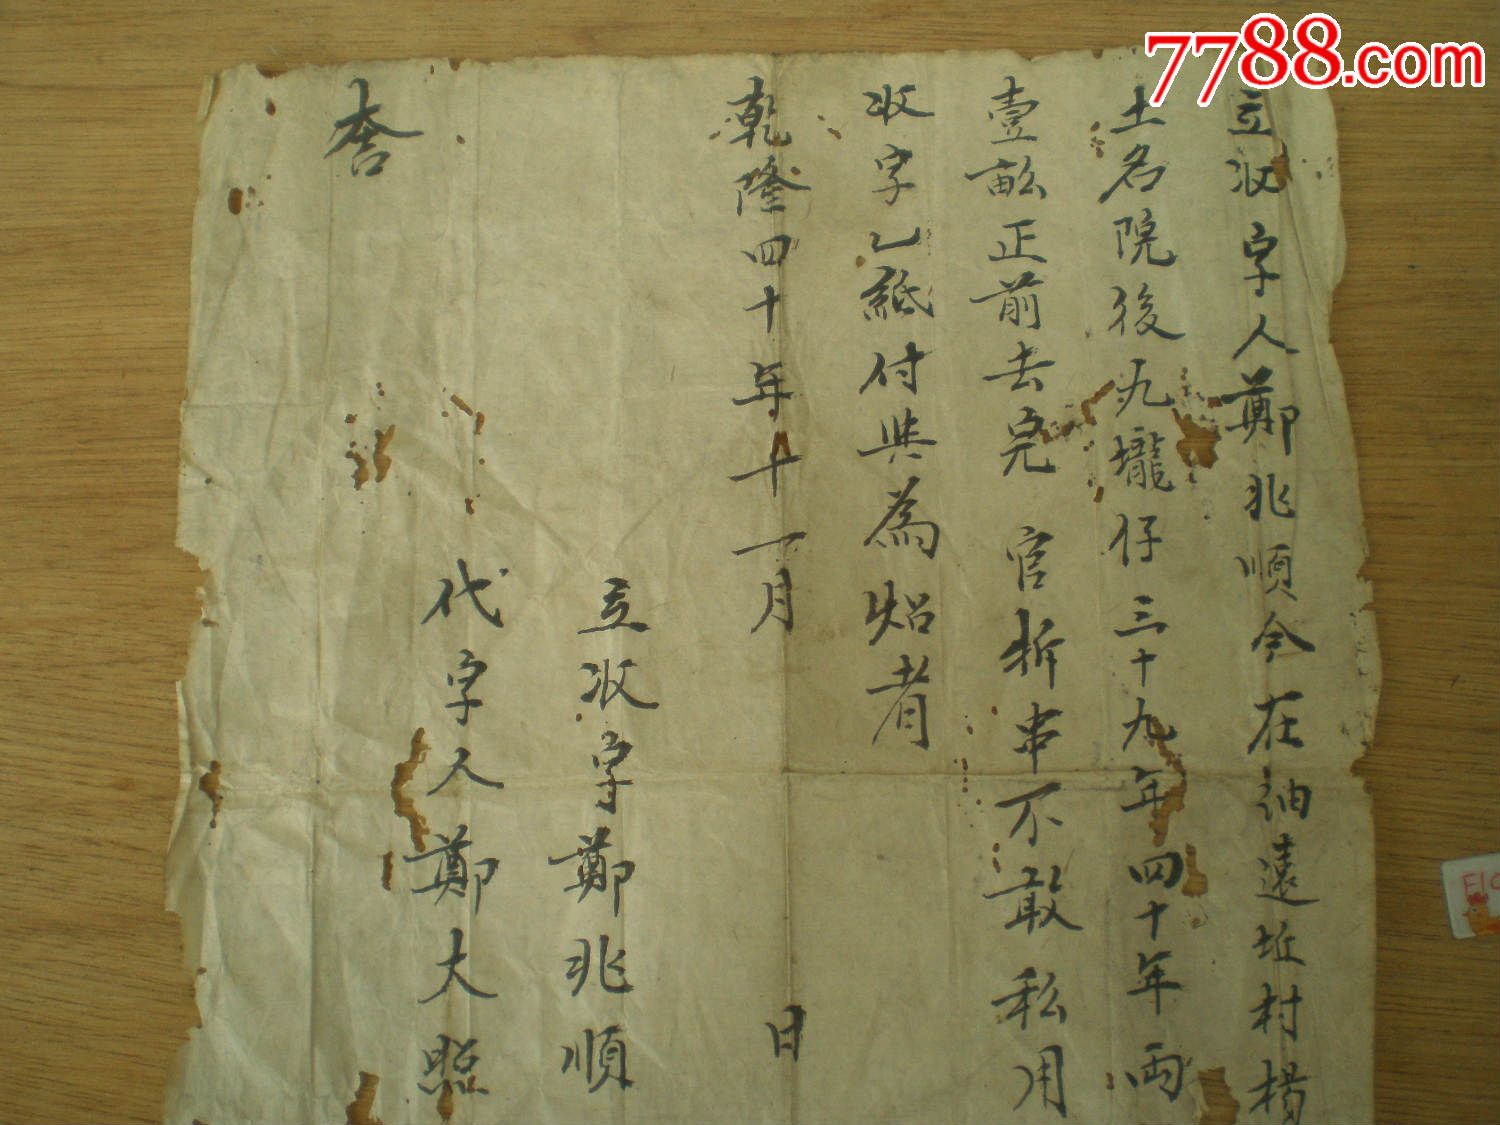 立收字人鄭兆順今在油遠坵村楊
土名院後九壠仔三十九年四十年両
壹畝正前去完官折串不敢私用
收字乙紙付與為炤者
乾隆四十年十一月 日
立收字鄭兆順
代字人鄭大照
7788.com